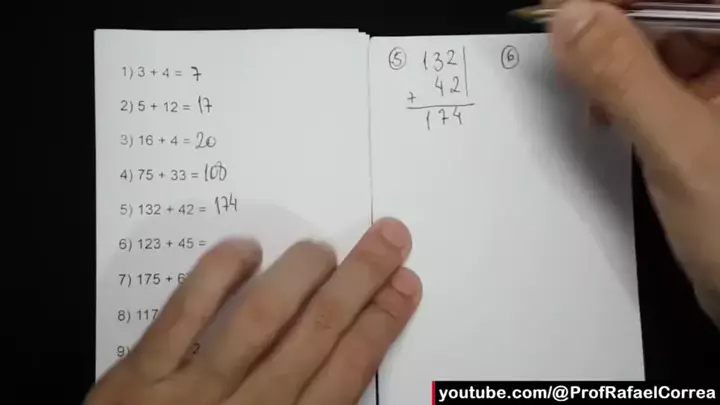 1) 3 + 4 = 7
2) 5 + 12 = 17
3) 16 + 4 = 20
4) 75 + 33 = 108
5) 132 + 42 = 174
6) 123 + 45 =
7) 175 + 6
8) 117
9)
2
5 132
+ 42
174
6
youtube.com/@ProfRafaelCorrea